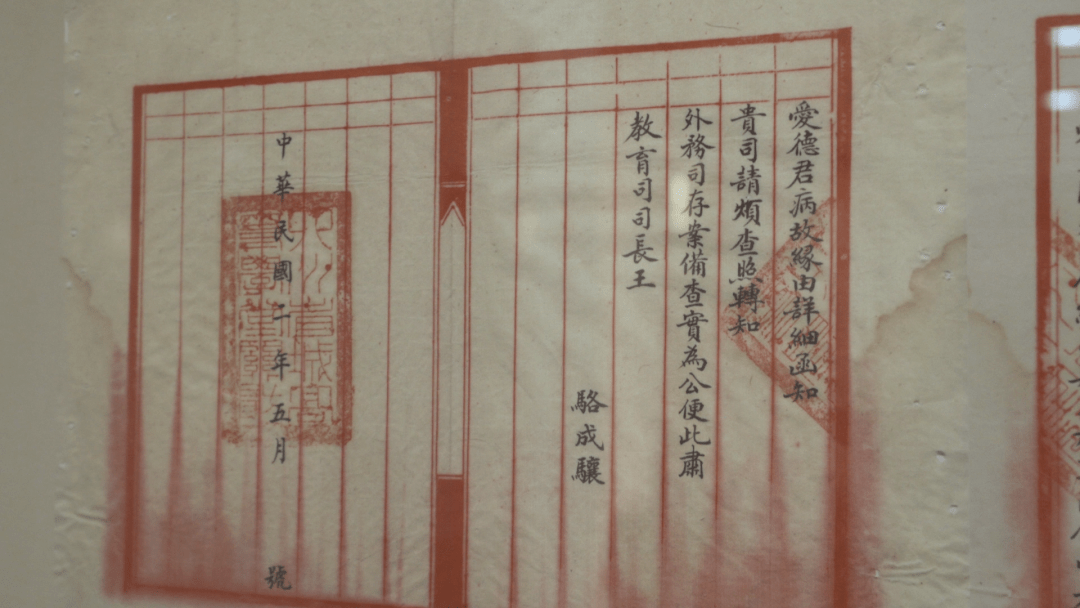 愛德君病故緣由詳細函知
貴司請煩查照轉知
外務司存案備查實為公便此肅
教育司司長王
駱成驤
中華民國二年五月 號